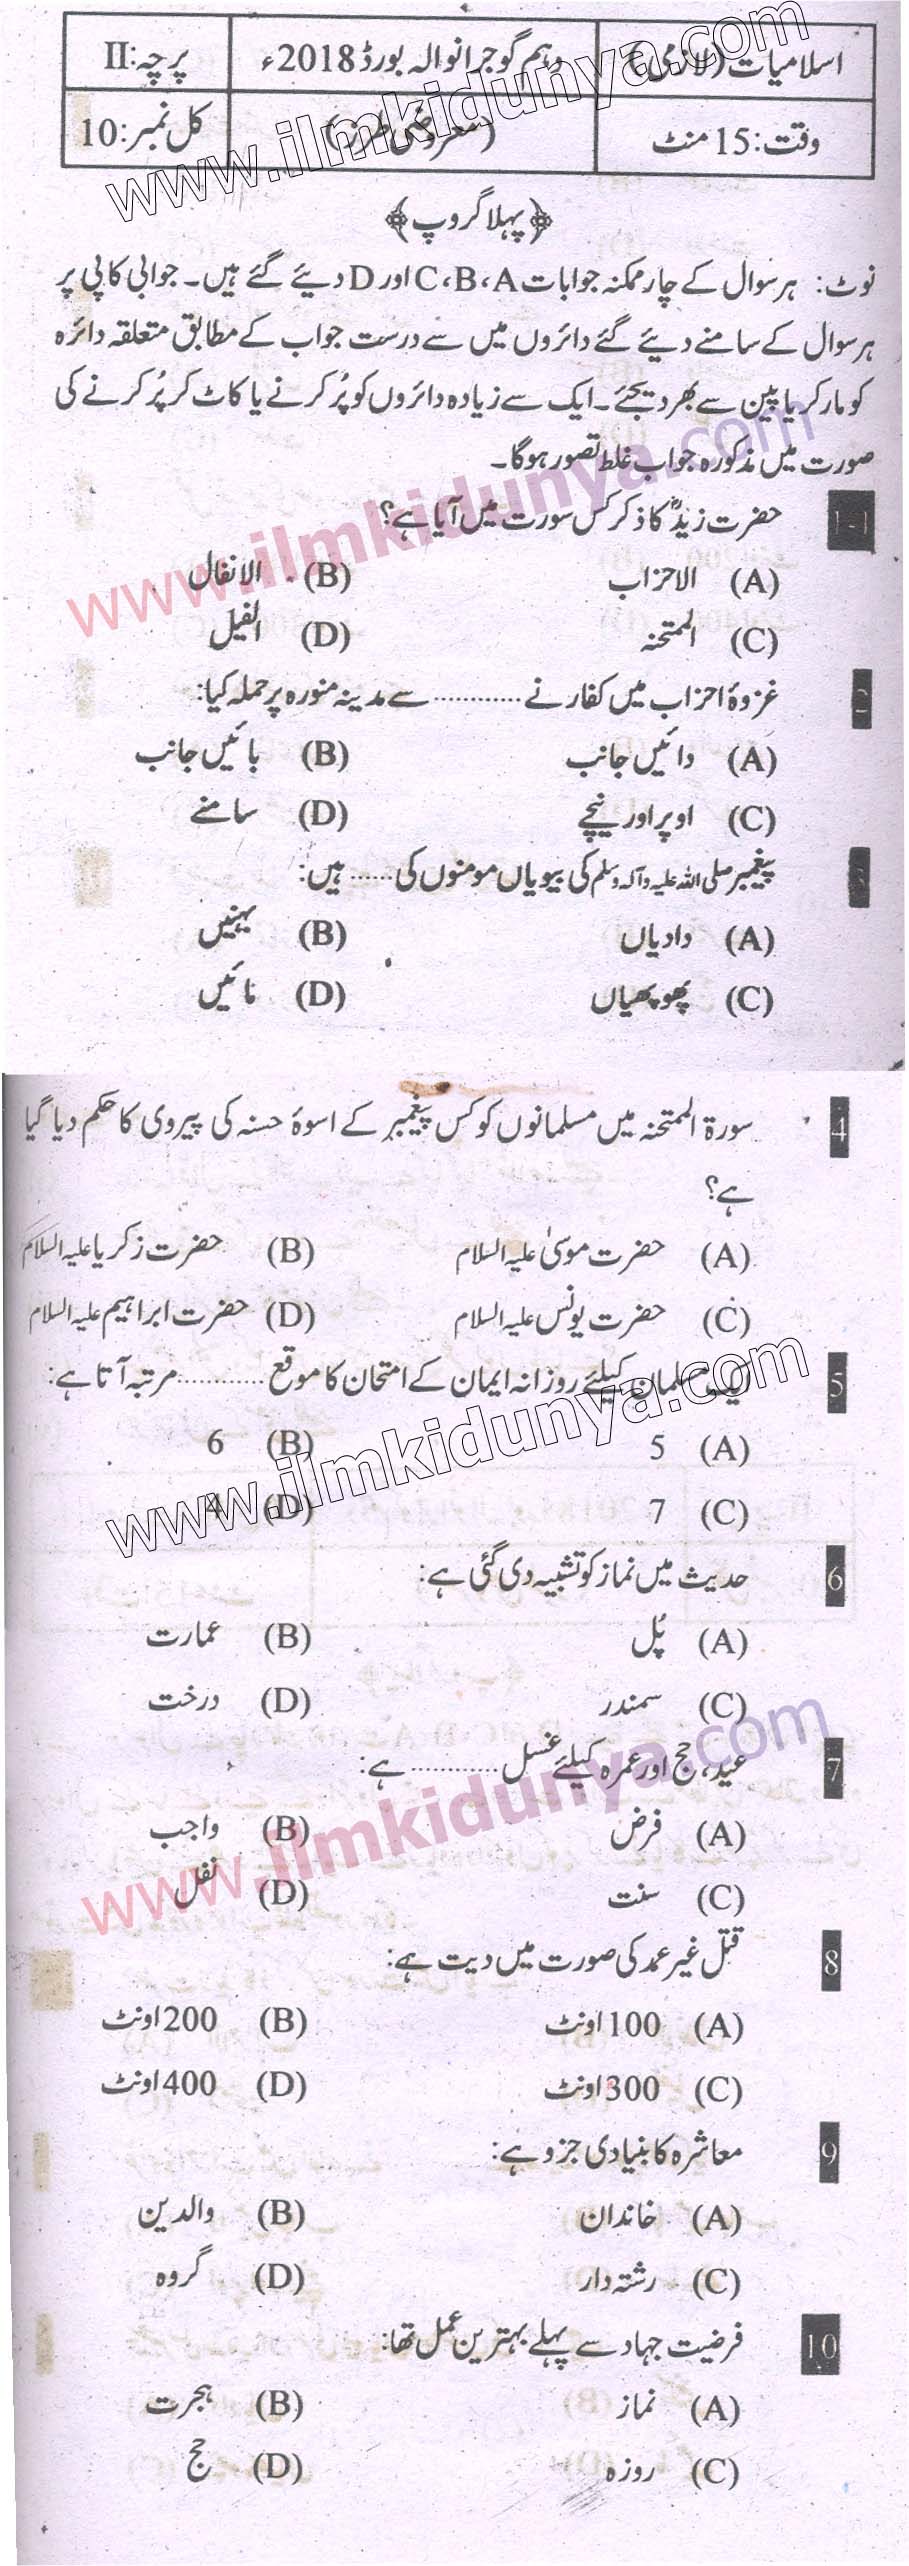 اسلامیات (لازمی) دہم گوجرانوالہ بورڈ 2018ء پرچہ: II
وقت: 15 منٹ (معروضی طرز) کل نمبر: 10
www.ilmkidunya.com
﴿پہلا گروپ﴾
نوٹ: ہر سوال کے چار ممکنہ جوابات C، B، A اور D دیئے گئے ہیں۔ جوابی کاپی پر
ہر سوال کے سامنے دیئے گئے دائروں میں سے درست جواب کے مطابق متعلقہ دائرہ
کو مارکر یا پین سے بھر دیجئے۔ ایک سے زیادہ دائروں کو پُر کرنے یا کاٹ کر پُر کرنے کی
صورت میں مذکورہ جواب غلط تصور ہوگا۔
www.ilmkidunya.com
1-1 حضرت زیدؓ کا ذکر کس سورت میں آیا ہے؟
(A) الاحزاب (B) الانفال
(C) الممتحنہ (D) الفیل
2 غزوۂ احزاب میں کفار نے ............ سے مدینہ منورہ پر حملہ کیا:
(A) دائیں جانب (B) بائیں جانب
(C) اوپر اور نیچے (D) سامنے
3 پیغمبر صلی اللہ علیہ وآلہ وسلم کی بیویاں مومنوں کی ...... ہیں:
(A) دادیاں (B) بہنیں
(C) پھوپھیاں (D) مائیں
4 سورۃ الممتحنہ میں مسلمانوں کو کس پیغمبر کے اسوۂ حسنہ کی پیروی کا حکم دیا گیا
ہے؟
(A) حضرت موسیٰ علیہ السلام (B) حضرت زکریا علیہ السلام
(C) حضرت یونس علیہ السلام (D) حضرت ابراہیم علیہ السلام
5 ایک مسلمان کیلئے روزانہ ایمان کے امتحان کا موقع ............ مرتبہ آتا ہے:
(A) 5 (B) 6
www.ilmkidunya.com
(C) 7 (D) 4
6 حدیث میں نماز کو تشبیہ دی گئی ہے:
(A) پُل (B) عمارت
(C) سمندر (D) درخت
7 عید، حج اور عمرہ کیلئے غسل ............ ہے:
(A) فرض (B) واجب
www.ilmkidunya.com
(C) سنت (D) نفل
8 قتل غیر عمد کی صورت میں دیت ہے:
(A) 100 اونٹ (B) 200 اونٹ
(C) 300 اونٹ (D) 400 اونٹ
9 معاشرہ کا بنیادی جزو ہے:
(A) خاندان (B) والدین
(C) رشتہ دار (D) گروہ
10 فرضیت جہاد سے پہلے بہترین عمل تھا:
(A) نماز (B) ہجرت
(C) روزہ (D) حج